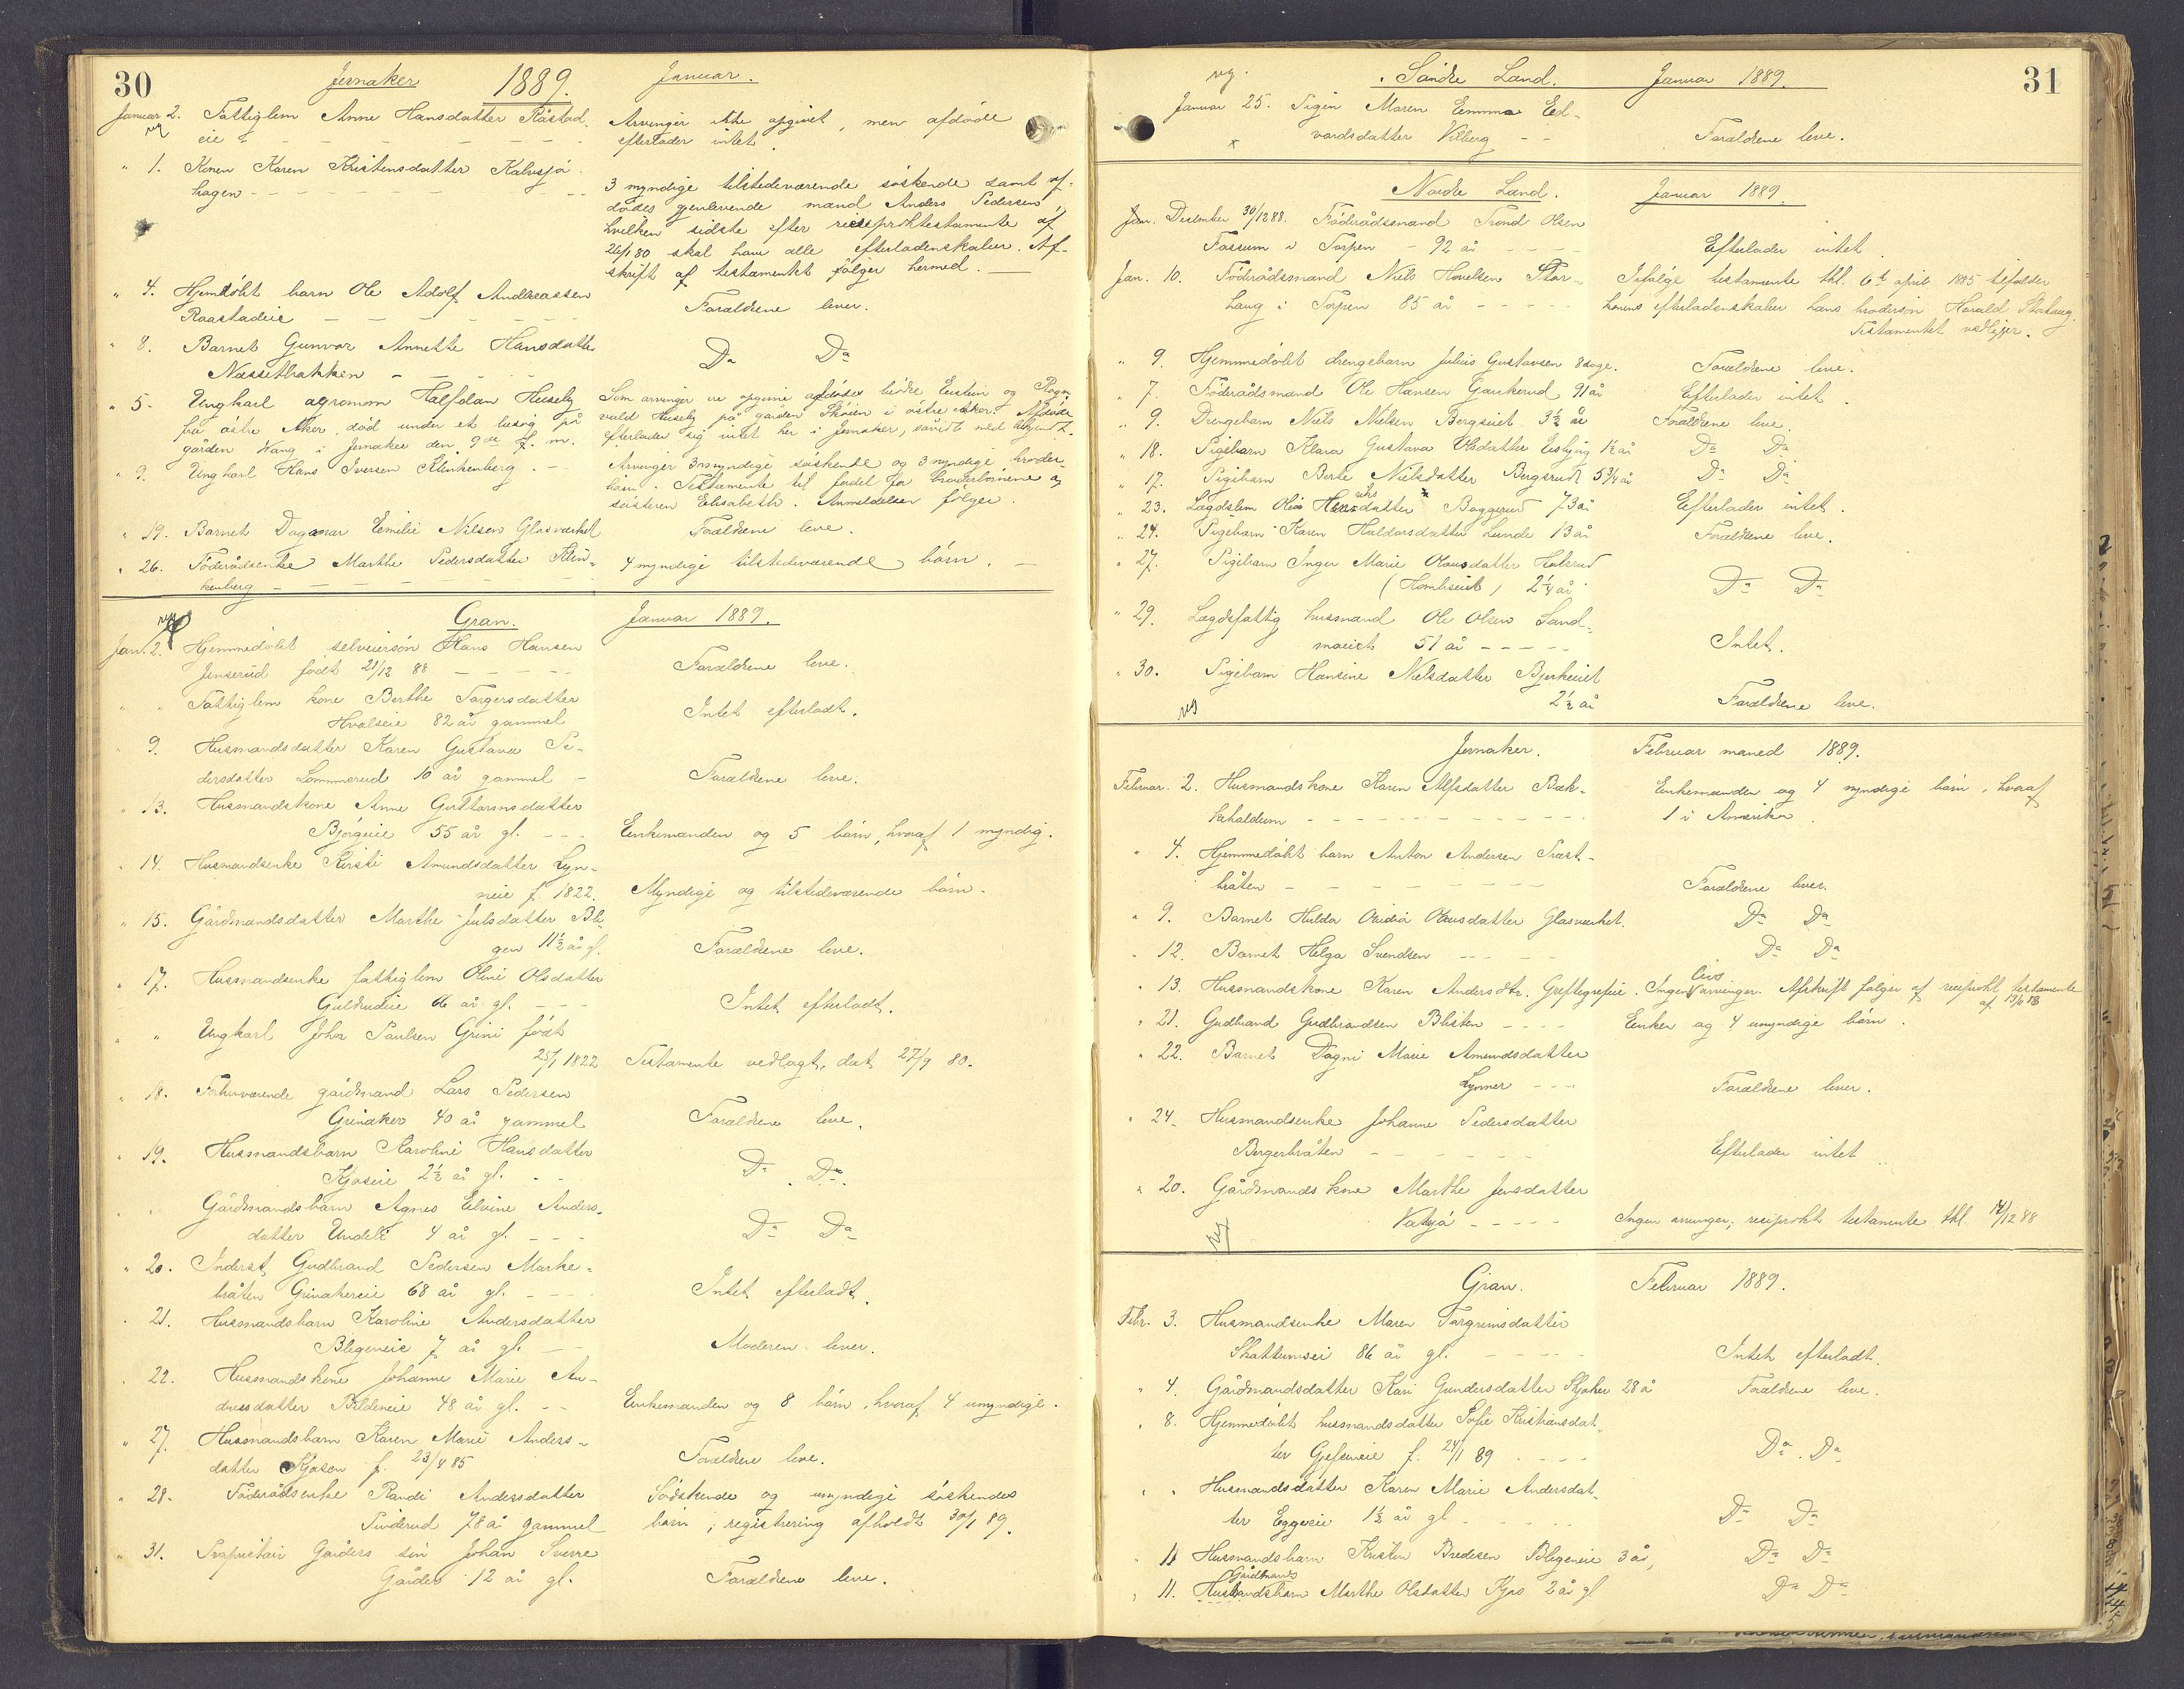 30
Jevnaker 1889. Januar.
Januar 2. Fattiglem Anne Hansdatter Råstad- Arvinger ikke opgivet, men afdøde
eie efterlader intet.
" 1. Konen Karen Kristensdatter Kalvsjø-
hagen 3 myndige tilstedeværende søskende samt af-
dødes gjenlevende mand Anders Pedersen,
hvilken sidste efter testamente af
26/1 80 skal have alle efterladenskaber. Af-
skrift af testamentet følger hermed.
" 4. Hjemdøbt barn Ole Adolf Andreassen
Raastadeie Forældrene lever.
" 8. Barnet Gunvor Annette Hansdatter
Næssetbakken Do Do
" 5. Ungkarl agronom Halfdan Huseby Som arvinger er opgivne afdødes brødre Eistein og Rogn-
fra østre Aker, død under et besøg på vald Huseby på gården Skøien i østre Aker. Afdøde
gården Vang i Jevnaker den 9de f. m. efterlader sig intet her i Jevnaker, såvidt med
" 9. Ungkarl Hans Iversen Klinkenberg. Arvinger 3 myndige søskende og 3 myndige broder-
børn. Testamente til fordel for broderbørnene og
søsteren Elisabeth. Anmeldelser følger.
" 19. Barnet Dagmar Emilie Nilsen Glasværket Forældrene leve.
" 26. Føderådsenke Marthe Pedersdatter Klin- 4 myndige tilstedeværende børn.
kenberg
Gran. Januar 1889.
Jan. 2. Hjemmedøbt selveiersøn Hans Hansen
Jenserud født 21/12 88 Forældrene leve.
" " Fattiglem kone Berthe Torgersdatter
Hvalseie 82 år gammel Intet efterladt.
" 9. Husmandsdatter Karen Gustava Pe-
dersdatter Lommerud 10 år gammel Forældrene leve.
" 13. Husmandskone Anne Guttormsdatter
Bjørgeie 55 år gl. Enkemanden og 5 børn, hvoraf 1 myndig.
" 14. Husmandsenke Kirsti Amundsdatter Lyn-
neie f. 1822. Myndige og tilstedeværende børn.
" 15. Gårdmandsdatter Marthe Julsdatter Ble-
gen 11½ år gl. Forældrene leve.
" 17. Husmandsenke fattiglem Oline Olsdatter
66 år gl. Intet efterladt.
" " Ungkarl Johs Paulsen Grini født
25/1 1822 Testamente vedlagt, dat 27/9 80.
" 18. Forhenværende gårdmand Lars Pedersen
Grinaker 40 år gammel Forældrene leve.
" 19. Husmandsbarn Karoline Hansdatter
Kjoseie 2½ år gl. Do Do.
" " Gårdmandsbarn Agnes Elvine Anders-
datter Undeli 4 år gl. Do Do
" 20. Inderst Gudbrand Pedersen Marke-
bråten Grinakereie 68 år gl. Intet efterladt.
" 21. Husmandsbarn Karoline Andersdatter
Blegeneie 7 år gl. Moderen lever.
" 22. Husmandskone Johanne Marie An-
dersdatter Bildeneie 48 år gl. Enkemanden og 8 børn, hvoraf 4 umyndige.
" 27. Husmandsbarn Karen Marie Anders-
datter Kjosen f. 23/4 85 Forældrene leve.
" 28. Føderådsenke Randi Andersdatter Sødskende og umyndige søskendes
78 år gammel børn; registrering afholdt 30/1 89.
" 31. Proprietair Gårders søn Johan Sverre
Gårder 12 år gl. Forældrene leve.
31
reg. Søndre Land. Januar 1889.
Januar 25. Pigen Maren Emma Ed-
vardsdatter Vilberg Forældrene leve.
Nordre Land. Januar 1889.
Jan. Desember 30/12 88. Føderådsmand Trond Olsen
Fossum i Torpen 92 år Efterlader intet.
Jan. 10. Føderådsmand Niels Hovelsen Stor- Ifølge testamente thl. 6te april 1885 tilfalder
haug i Torpen 85 år hans efterladenskaber hans brodersøn Harald Storhaug.
Testamentet vedligger.
" 9. Hjemmedøbt drengebarn Julius Gustavsen 8 dage. Forældrene leve.
" 7. Føderådsmand Ole Hansen Gaukerud 91 år Efterlader intet.
" 9. Drengebarn Niels Nielsen Bergseiet 3½ år Forældrene leve.
" 18. Pigebarn Klara Gustava Olsdatter 1½ år Do Do
" 17. Pigebarn Berte Nielsdatter Bergsrud 5¾ år Do Do
" 23. Lægdslem Olia datter Baggerud 73 år Efterlader intet.
" 24. Pigebarn Karen Haldorsdatter Lunde 13 år Forældrene leve.
" 27. Pigebarn Inger Marie Olausdatter
2¼ år Do Do
" 29. Lægdsfattig husmand Ole Olsen Sand-
maeiet 51 år Intet.
" 30. Pigebarn Hansine Nielsdatter Bjerkeeiet
2½ år Forældrene leve.
reg
Jevnaker. Februar maned 1889.
Februar. 2. Husmandskone Karen Alfsdatter Bæk- Enkemanden og 4 myndige børn, hvoraf
kehaldum 1 i Amerika.
" 4. Hjemmedøbt barn Anton Andersen Præst-
bråten Forældrene lever.
" 9. Barnet Hulda Olausdatter Glasværket. Do Do
" 12. Barnet Helga Svendsen Do Do
" 13. Husmandskone Karen Andersdtr. Greftegrefeie. Ingen livsarvinger. Afskrift følger af reciprokt testamente
af 13/6 18
" 21. Gudbrand Gudbrandsen Blisten Enken og 4 umyndige børn.
" 22. Barnet Dagni Marie Amundsdatter
Lynner Forældrene lever.
" 24. Husmandsenke Johanne Pedersdatter
Bergerbråten Efterlader intet
" 20. Gårdmands kone Marthe Jensdatter
Vatsjø Ingen arvinger; reciprokt testamente thl. 14/12 88
reg
Gran. Februar 1889.
Febr. 3. Husmandsenke Maren Torgrimsdatter
Skattumseie 86 år gl. Intet efterladt.
" 4. Gårdmandsdatter Kari Gundersdatter Skjaker 28 år Forældrene leve.
" 8. Hjemmedøbt husmandsdatter Sofie Kristiansdat-
ter Gjefseneie f. 24/1 89 Do Do
" " Husmandsdatter Karen Marie Andersdat-
ter Eggeeie 1½ år gl Do Do
" 11 Husmandsbarn Kristen Bredesen Blegeneie 3 år, Do Do
Gårdmands
" 11. Husmandsbarn Marthe Olsdatter Kjos 2 år gl Do Do